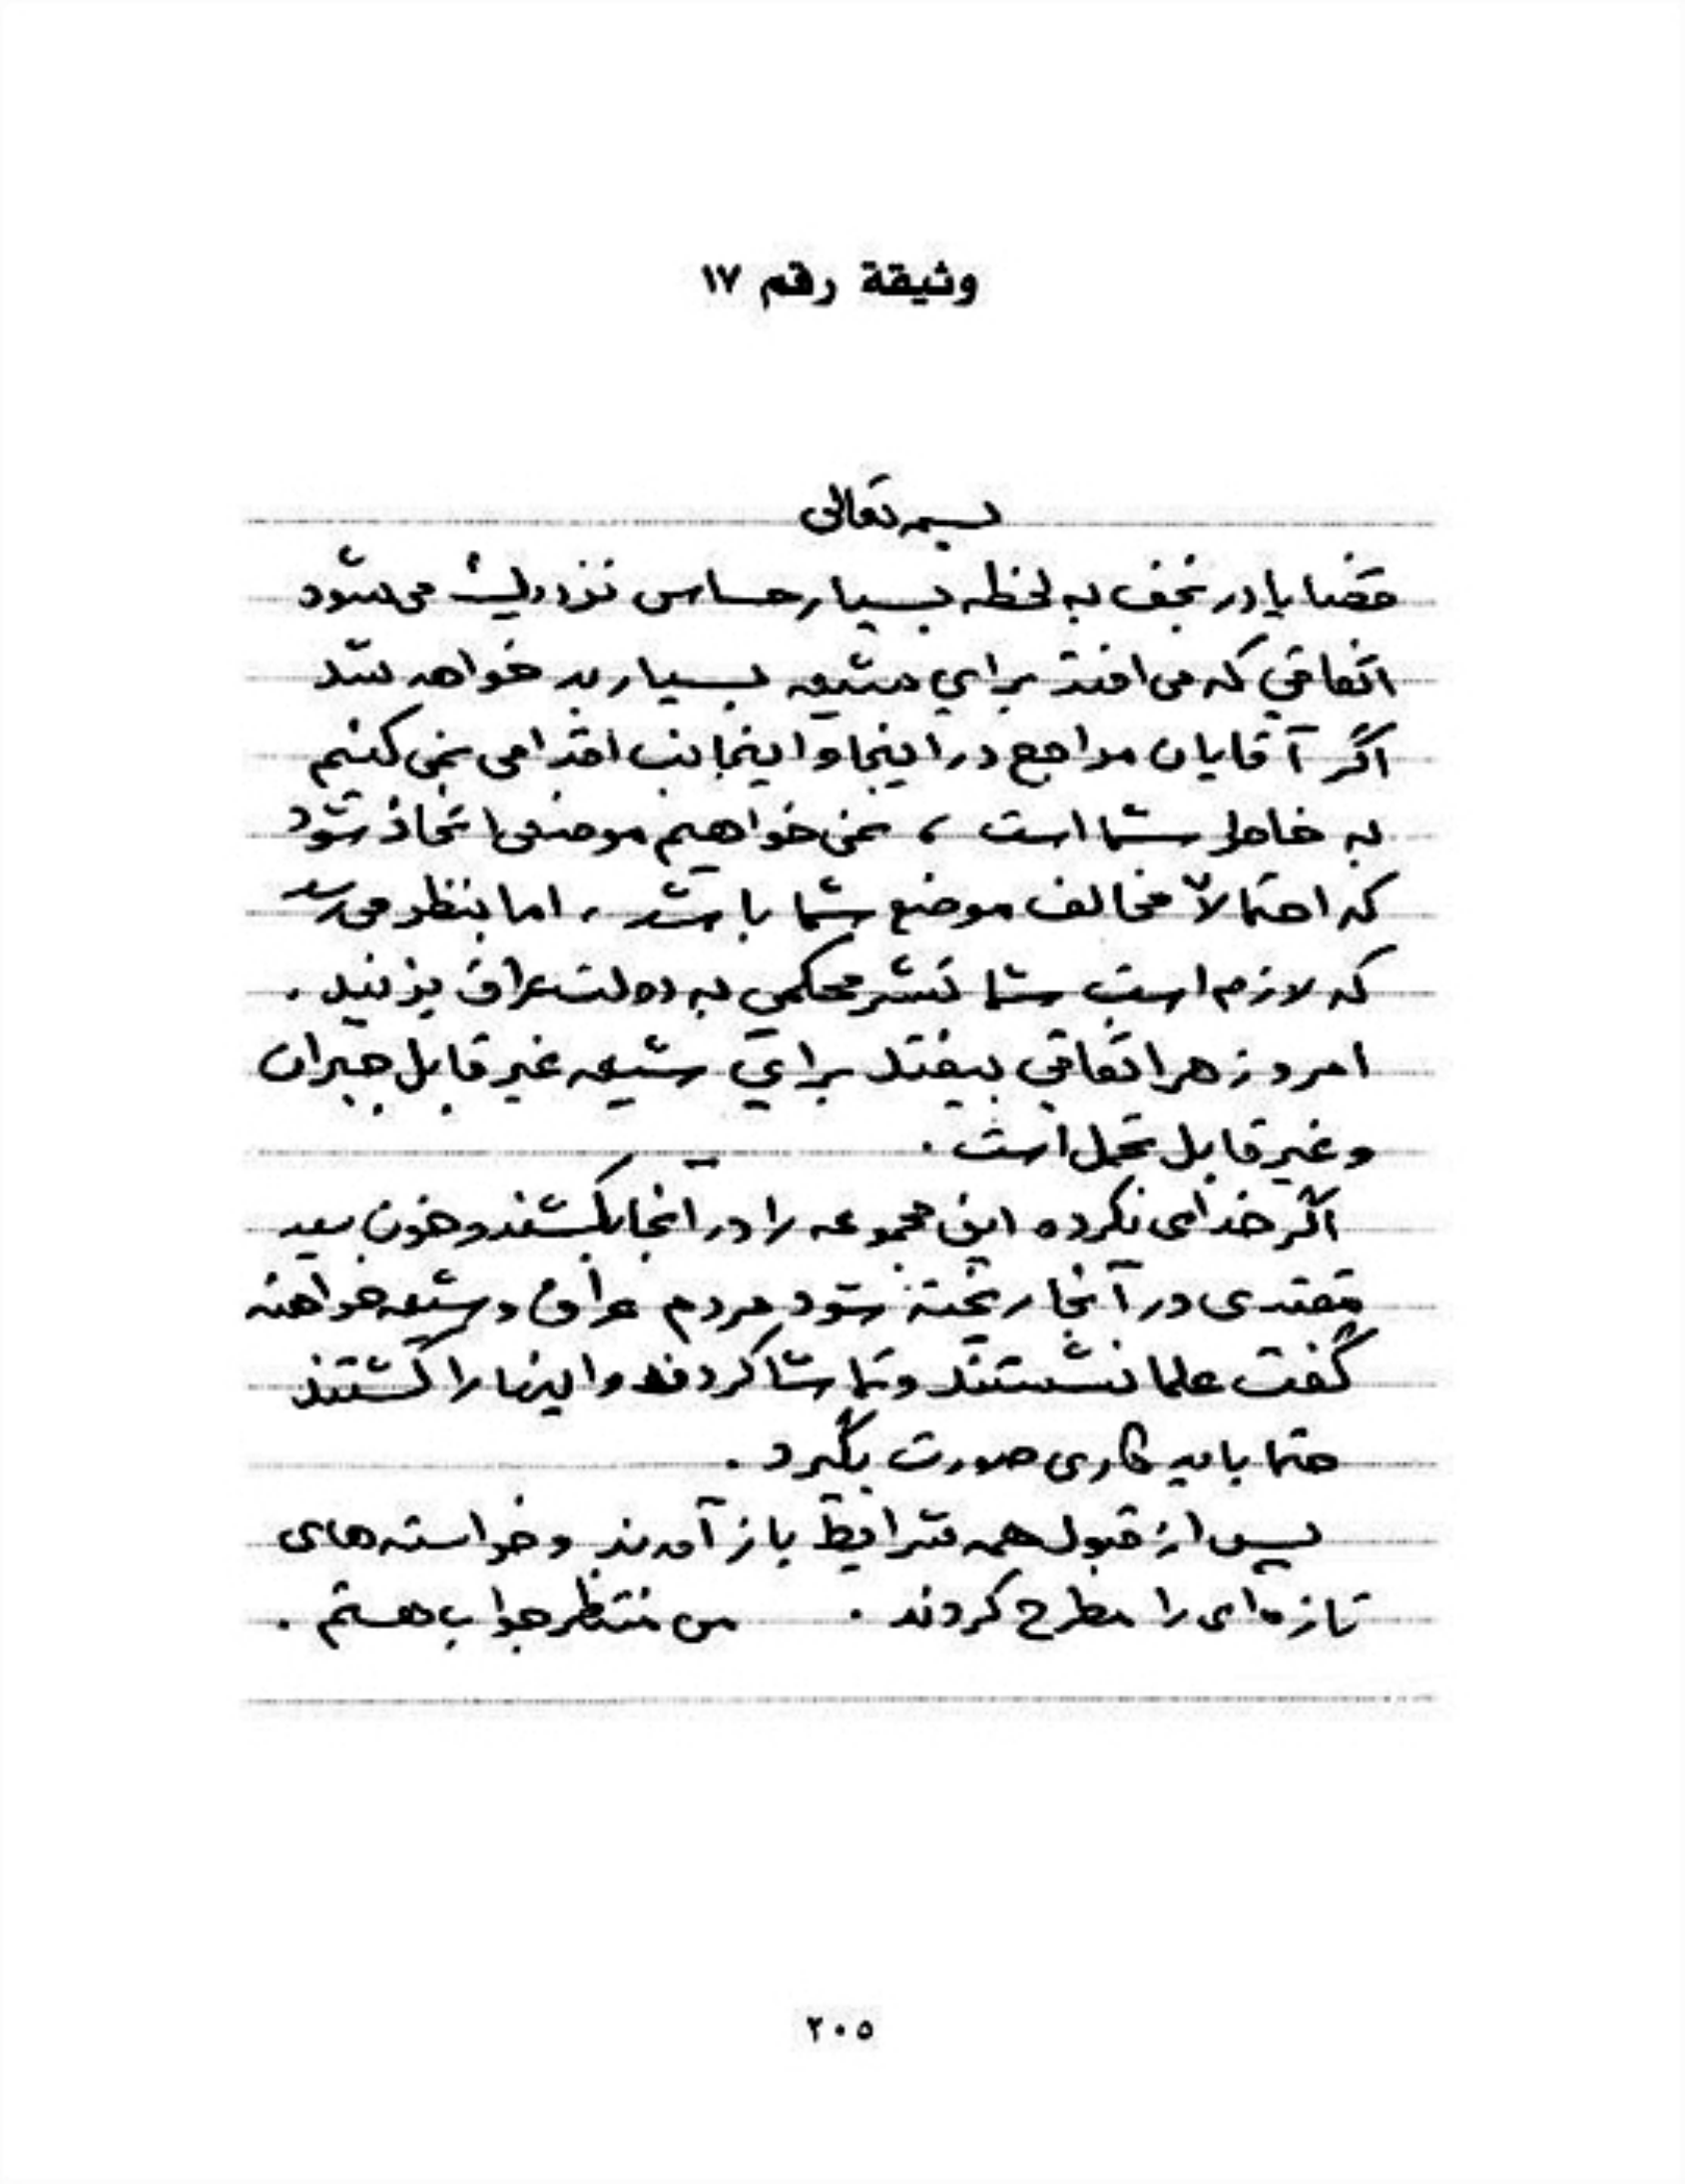 وثيقة رقم ١٧
بسمه تعالی
قضایا در نجف به لحظه بسیار حساس نزدیک می شود
اتفاقي که می افتد براي شیعه بسیار بد خواهد شد
اگر آقایان مراجع در اینجا و اینجانب اقدامی نمی کنیم
به خاطر شما است ، نمی خواهیم موضعی اتخاذ شود
که احتمالاً مخالف موضع شما باشد ، اما بنظر می رسد
که لازم است شما تشر محکمي به دولت عراق بزنید .
امروز هر اتفاقي بیفتد براي شیعه غیر قابل جبران
و غیر قابل تحمل است .
اگر خدای نکرده این مجموعه را در آنجا بکشند و خون سید
مقتدی در آنجا ریخته شود مردم عراق و شیعه خواهند
گفت علما نشستند و تماشا کردند و اینها را کشتند
حتما باید کاری صورت بگیرد .
پس از قبول همه شرایط باز آمدند و خواسته های
تازه ای را مطرح کردند . من منتظر جواب هستم .
٢٠٥